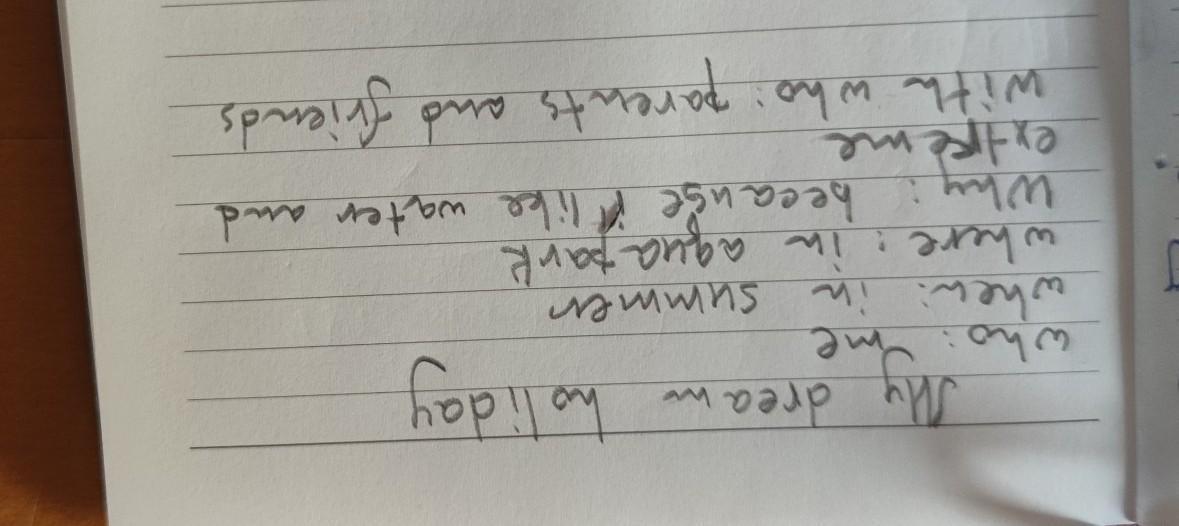 My dream holiday
who: me
when: in summer
where: in aquapark
Why: because I like water and
extreme
with who: parents and friends